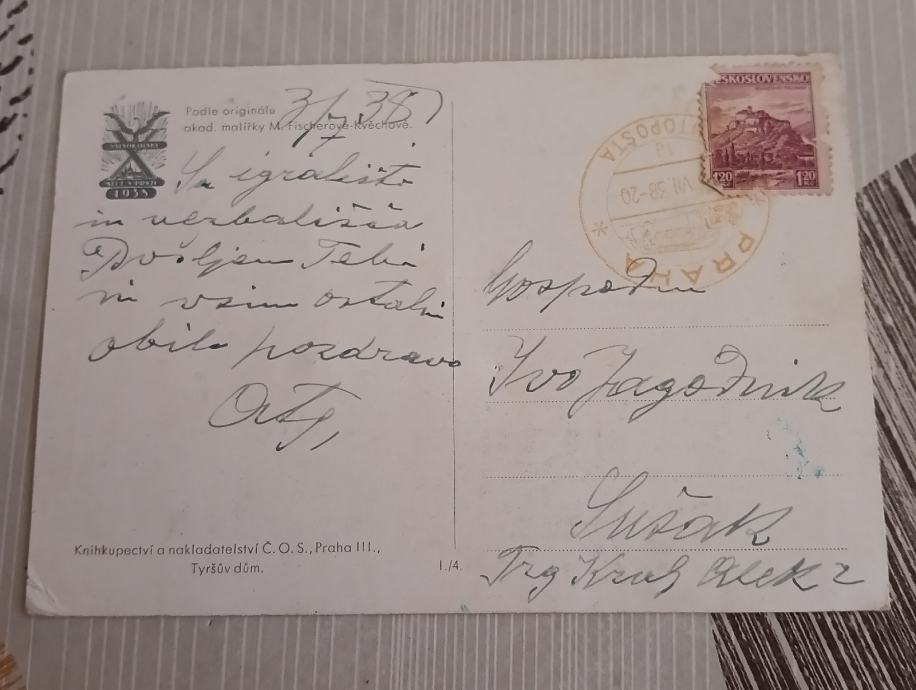 Podle originálu
akad. malířky M. Fischerové-Kvěchové.
3/7 38
VŠESOKOLSKÝ
SLET V PRAZE
1938
Sa igrališta
in verbališča
Tebi
in vsim ostalim
obilo pozdravo
Knihkupectví a nakladatelství Č. O. S., Praha III.,
Tyršův dům.
I./4.
ČESKOSLOVENSKO
1·20 1·20
AUTOPOŠTA
VII 38-20
PRAHA
Gospodin
Ivo Jagodnik
Sušak
Trg Kralj Aleks 2